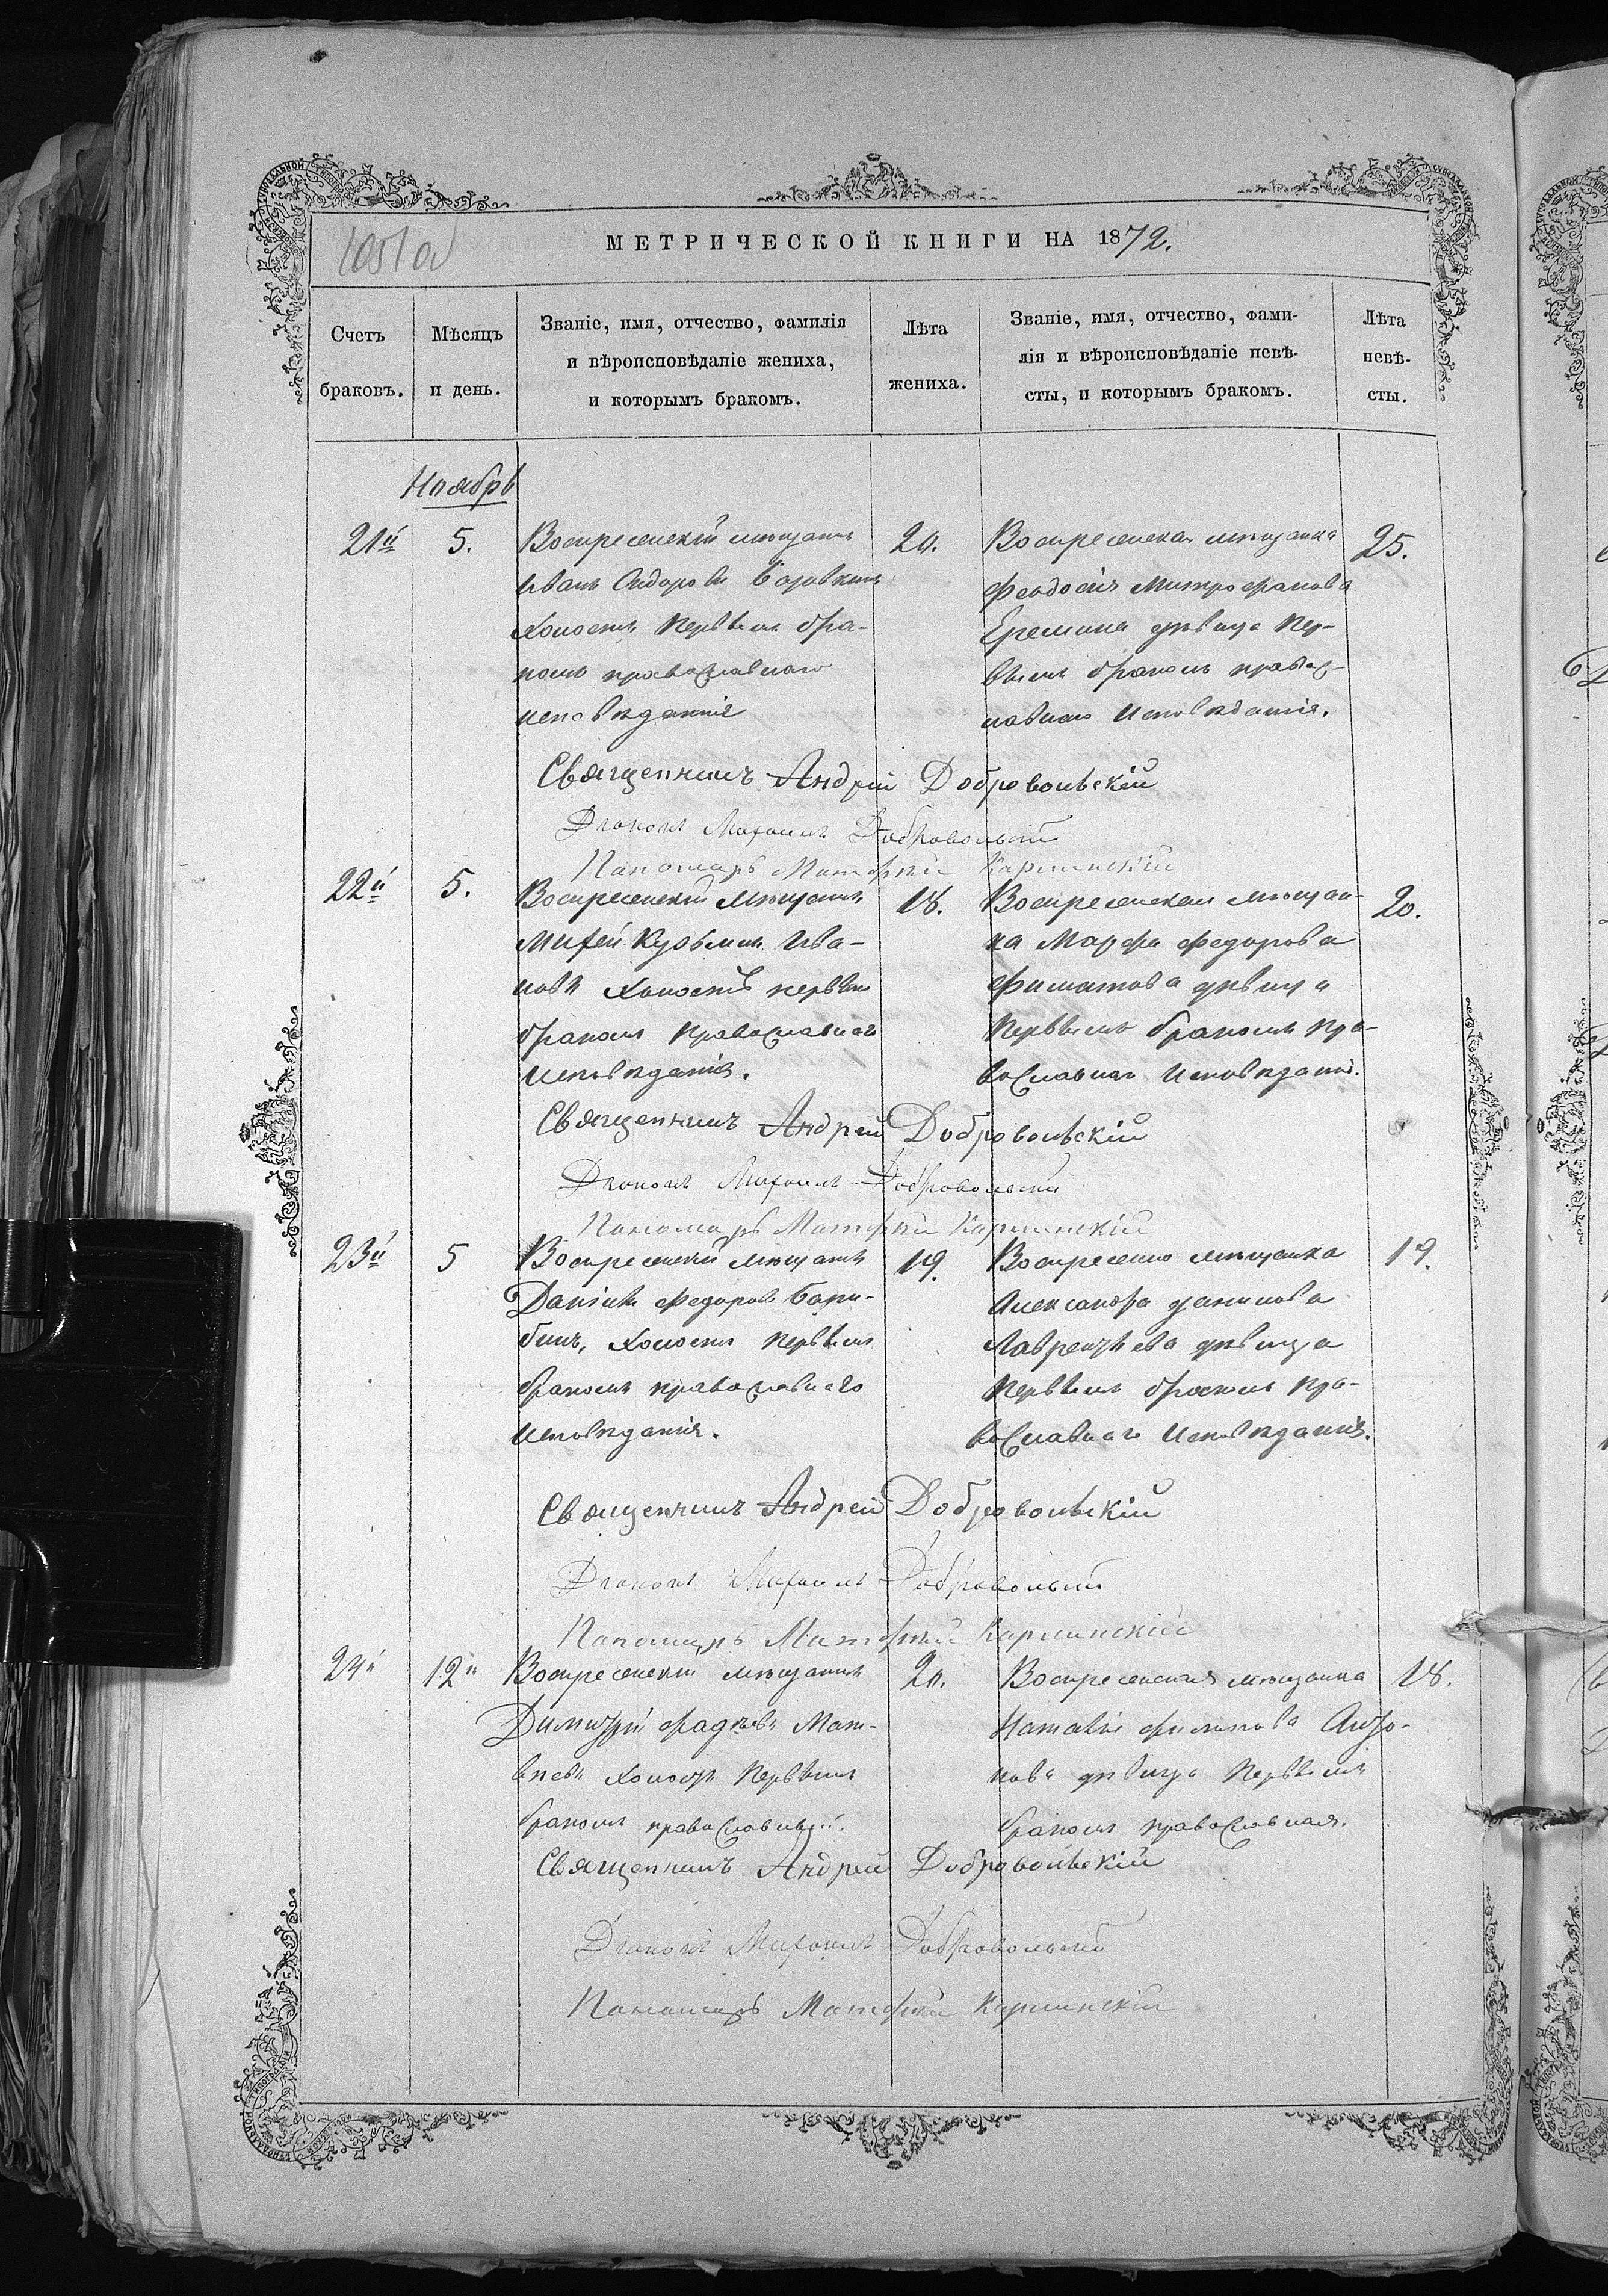 МЕТРИЧЕСКОЙ КНИГИ НА 1872.
Счетъ браковъ.
Мѣсяцъ и день.
Званіе, имя, отчество, фамилія
и вѣроисповѣданіе жениха,
и которымъ бракомъ.
Лѣта жениха.
Званіе, имя, отчество, фами-
лія и вѣроисповѣданіе невѣ-
сты, и которымъ бракомъ.
Лѣта невѣ-
сты.
Ноябрь
21й
5.
Воскресенскій мѣщанинъ
Иванъ Сидоровъ
Холостъ первымъ бра-
комъ православнаго
исповѣданія
20.
Воскресенская мѣщанка
Феодосія Митрофанова
Еремина дѣвица пер-
вымъ бракомъ правос-
лавнаго исповѣданія.
25.
Священникъ Андрей Добровольскій
Діаконъ Михаилъ Добровольскій
Пономарь Матфей Карпинскій
22й
5.
Воскресенскій мѣщанинъ
Кузьминъ Ива-
новъ Холостъ первымъ
бракомъ Православнаго
исповѣданія.
18.
Воскресенская мѣщан-
ка Марфа Федорова
Филатова дѣвица
Первымъ бракомъ пра-
вославнаго исповѣданія.
20.
Священникъ Андрей Добровольскій
Діаконъ Михаилъ Добровольскій
Пономарь Матфей Карпинскій
23й
5
Воскресенскій мѣщанинъ
Даніилъ Федоровъ Бари-
бинъ, Холостъ первымъ
бракомъ православнаго
исповѣданія.
19.
мѣщанка
Александра Данилова
Лаврентьева дѣвица
первымъ бракомъ пра-
вославнаго исповѣданія.
19.
Священникъ Андрей Добровольскій
Діаконъ Михаилъ Добровольскій
Пономарь Матфей Карпинскій
24й
12
Воскресенскій мѣщанинъ
Димитрій Фадѣевъ Мат-
вѣевъ Холостъ Первымъ
бракомъ православный.
20.
Воскресенская мѣщанка
Наталія Филипова Анто-
нова дѣвица первымъ
бракомъ православная.
18.
Священникъ Андрей Добровольскій
Діаконъ Михаилъ Добровольскій
Пономарь Матфей Карпинскій